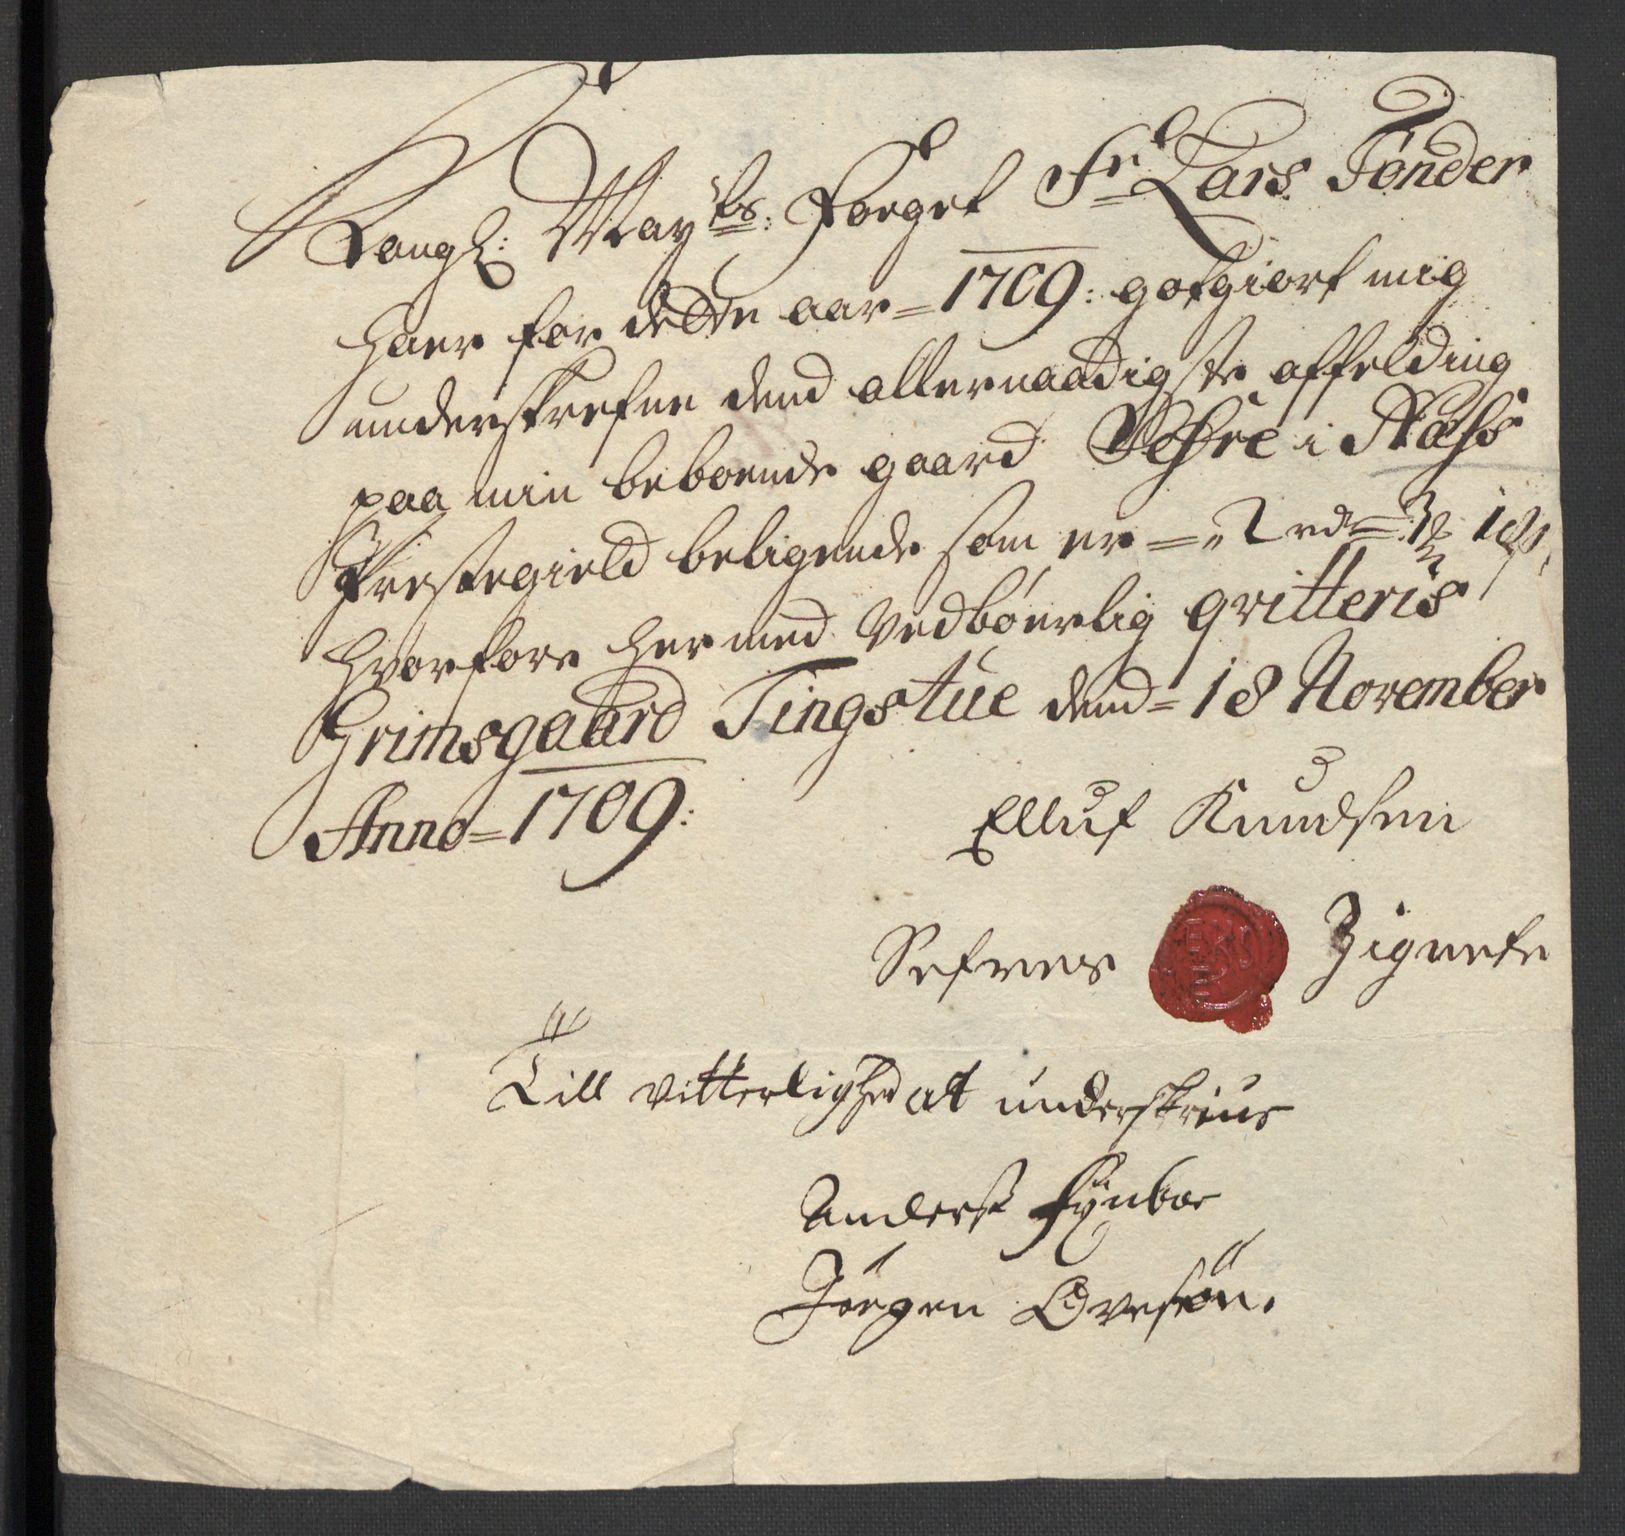 Kongl: May^ts: Foeget Sr Lars Tønder
haer for dette aar = 1709: gotgiort mig
underskrefne dend allernaadigste affelding
paa min beboende gaard Vehre i Næss
Prestegield beligende som er
hvorfore hermed vedbørlig qvitteris
Grimsgaard Tingstue dend = 18 November
Anno = 1709:
Elluf Knudsen
Refnes Zignete
Till vitterlighed at underskriuer
Anders Fynboe
Jörgen Ovesøn.